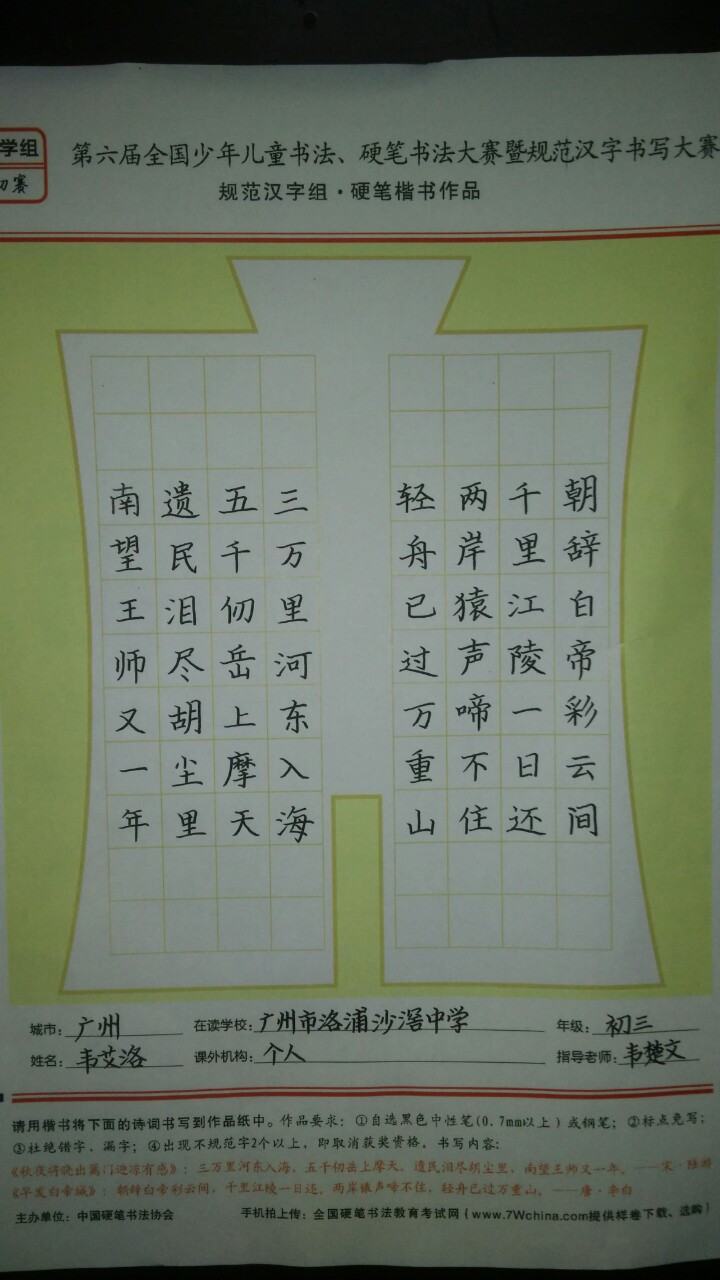 学组
初赛
第六届全国少年儿童书法、硬笔书法大赛暨规范汉字书写大赛
规范汉字组·硬笔楷书作品
朝辞白帝彩云间
千里江陵一日还
两岸猿声啼不住
轻舟已过万重山
三万里河东入海
五千仞岳上摩天
遗民泪尽胡尘里
南望王师又一年
城市：广州 在读学校：广州市洛浦沙滘中学 年级：初三
姓名：韦艾洛 课外机构：个人 指导老师：韦楚文
请用楷书将下面的诗词书写到作品纸中。作品要求：①自选黑色中性笔(0.7mm以上）或钢笔；②标点免写；
③杜绝错字、漏字；④出现不规范字2个以上，即取消获奖资格。书写内容：
《秋夜将晓出篱门迎凉有感》：三万里河东入海，五千仞岳上摩天。遗民泪尽胡尘里，南望王师又一年。——宋·陆游
《早发白帝城》：朝辞白帝彩云间，千里江陵一日还。两岸猿声啼不住，轻舟已过万重山。——唐·李白
主办单位：中国硬笔书法协会 手机拍上传：全国硬笔书法教育考试网（www.7Wchina.com提供样卷下载、选购）